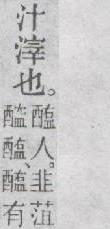 汁滓也。
醢人。韭菹
醓醢、醢有